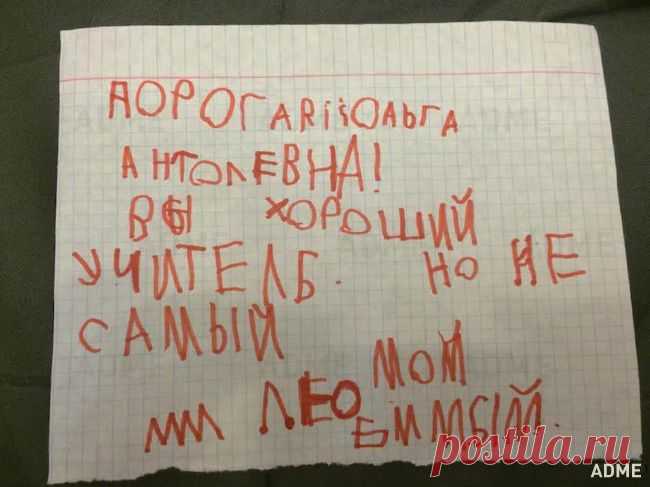 ДОРОГАЯ ОЛЬГА
АНТОЛЕВНА!
ВЫ ХОРОШИЙ
УЧИТЕЛЬ. НО НЕ
САМЫЙ
МОЙ
ЛЕО
БИМЫЙ.
postila.ru
ADME